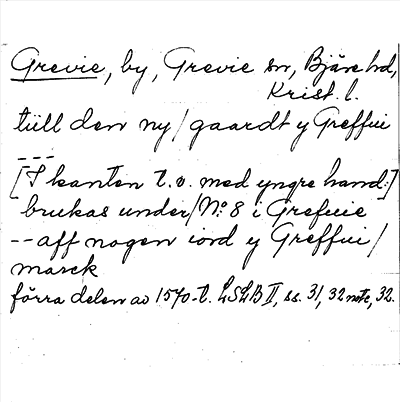 Grevie, by, Grevie sn, Bjäre hd,
Krist. l.
tüll den ny/gaardt y Greffui
---
[I kanten t.v. med yngre hand:]
brukas under/No: 8 i Grefuie
-- aff nogen iord y Greffui/
marck
förra delen av 1570-t. LSLB II, ss. 31, 32 note, 32.